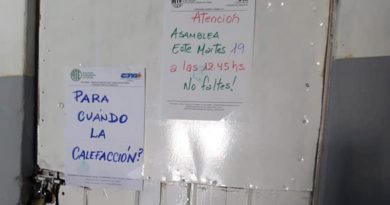 Atención
ASAMBLEA
Este Martes 19
a las 12.45 hs
No faltes!
PARA
CUÁNDO
LA
CALEFACCIÓN?